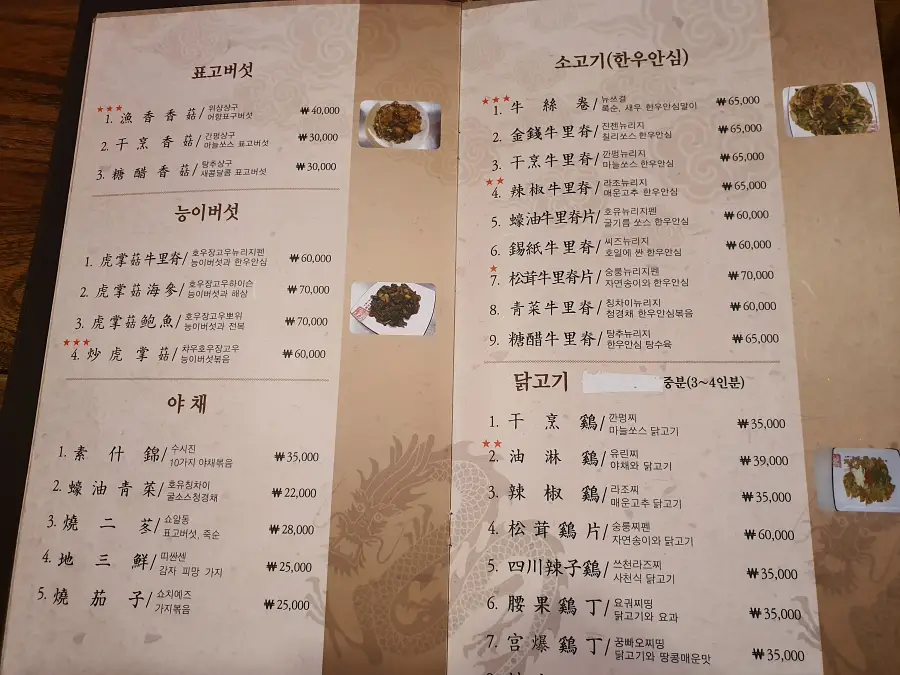 표고버섯
★★★
1. 漁香香菇/ 위샹샹구 ₩40,000
어향표구버섯
2. 干烹香菇/ 간펑샹구 ₩30,000
마늘쏘스 표고버섯
3. 糖醋香菇/ 탕추샹구 ₩30,000
새콤달콤 표고버섯
능이버섯
1. 虎掌菇牛里脊/ 호우장고우뉴리지펜 ₩60,000
능이버섯과 한우안심
2. 虎掌菇海參/ 호우장고우하이슨 ₩70,000
능이버섯과 해삼
3. 虎掌菇鮑魚/ 호우장고우뽀위 ₩70,000
능이버섯과 전복
★★★
4. 炒虎掌菇/ 챠우호우장고우 ₩60,000
능이버섯볶음
야 채
1. 素什錦/ 수시진 ₩35,000
10가지 야채볶음
2. 蠔油青菜/ 호유칭차이 ₩22,000
굴소스청경채
3. 燒二冬/ 쇼얄동 ₩28,000
표고버섯, 죽순
4. 地三鮮/ 띠싼센 ₩25,000
감자 피망 가지
5. 燒茄子/ 쇼치예즈 ₩25,000
가지볶음
소고기(한우안심)
★★★
1. 牛絲卷/ 뉴쓰결 ₩65,000
죽순, 새우 한우안심말이
2. 金錢牛里脊/ 진젠뉴리지 ₩65,000
칠리쏘스 한우안심
3. 干烹牛里脊/ 깐펑뉴리지 ₩65,000
마늘쏘스 한우안심
★★
4. 辣椒牛里脊/ 라조뉴리지 ₩65,000
매운고추 한우안심
5. 蠔油牛里脊片/ 호유뉴리지펜 ₩60,000
굴기름 쏘스 한우안심
6. 錫紙牛里脊/ 씨즈뉴리지 ₩60,000
호일에 싼 한우안심
★
7. 松茸牛里脊片/ 숭룽뉴리지펜 ₩70,000
자연송이와 한우안심
8. 青菜牛里脊/ 칭차이뉴리지 ₩60,000
청경채 한우안심볶음
9. 糖醋牛里脊/ 탕추뉴리지 ₩65,000
한우안심 탕수육
닭고기 중분(3~4인분)
1. 干烹鷄/ 깐펑찌 ₩35,000
마늘쏘스 닭고기
★★
2. 油淋鷄/ 유린찌 ₩39,000
야채와 닭고기
3. 辣椒鷄/ 라조찌 ₩35,000
매운고추 닭고기
4. 松茸鷄片/ 숭룽찌펜 ₩60,000
자연송이와 닭고기
5. 四川辣子鷄/ 쓰천라즈찌 ₩35,000
사천식 닭고기
6. 腰果鷄丁/ 요궈찌띵 ₩35,000
닭고기와 요과
7. 宮爆鷄丁/ 꿍빠오찌띵 ₩35,000
닭고기와 땅콩매운맛